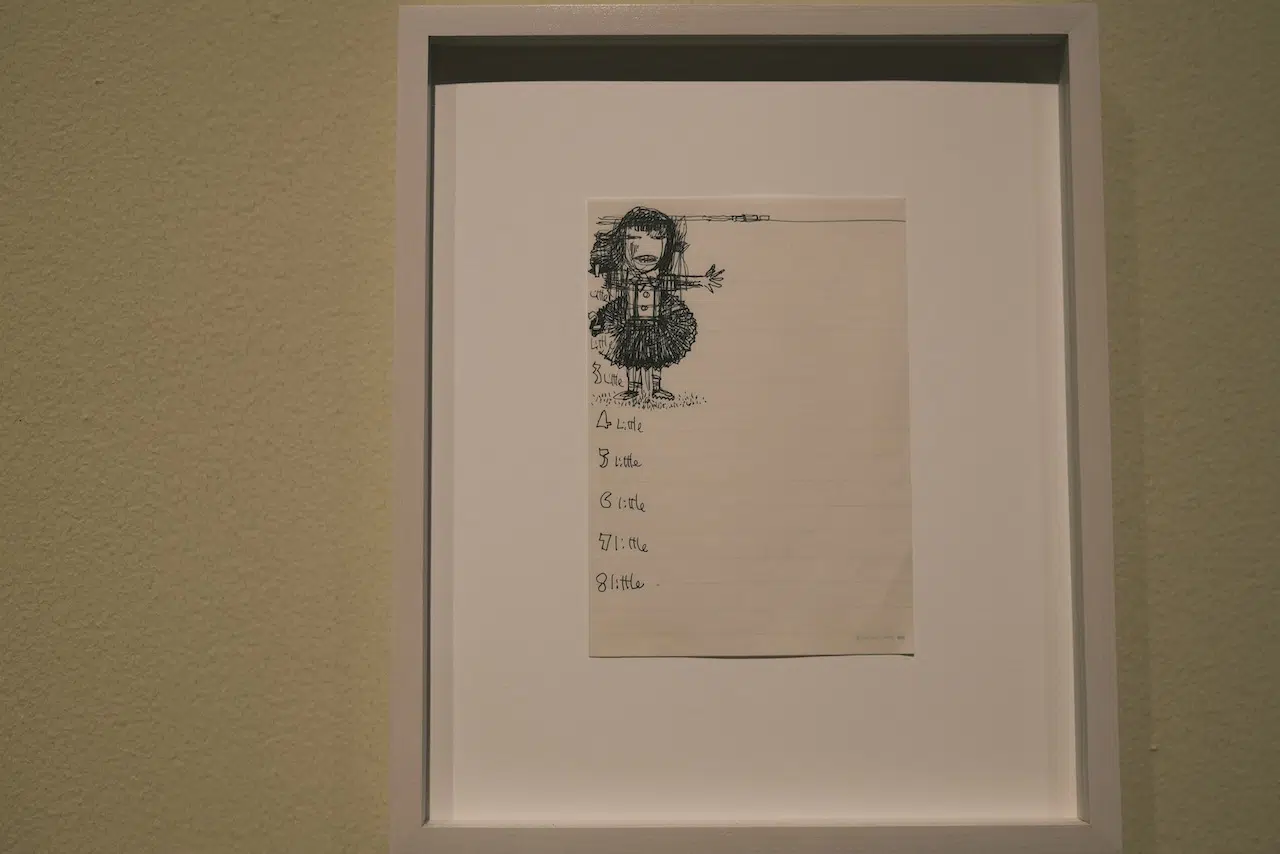 Little
Little
3 Little
4 Little
5 little
6 little
7 little
8 little